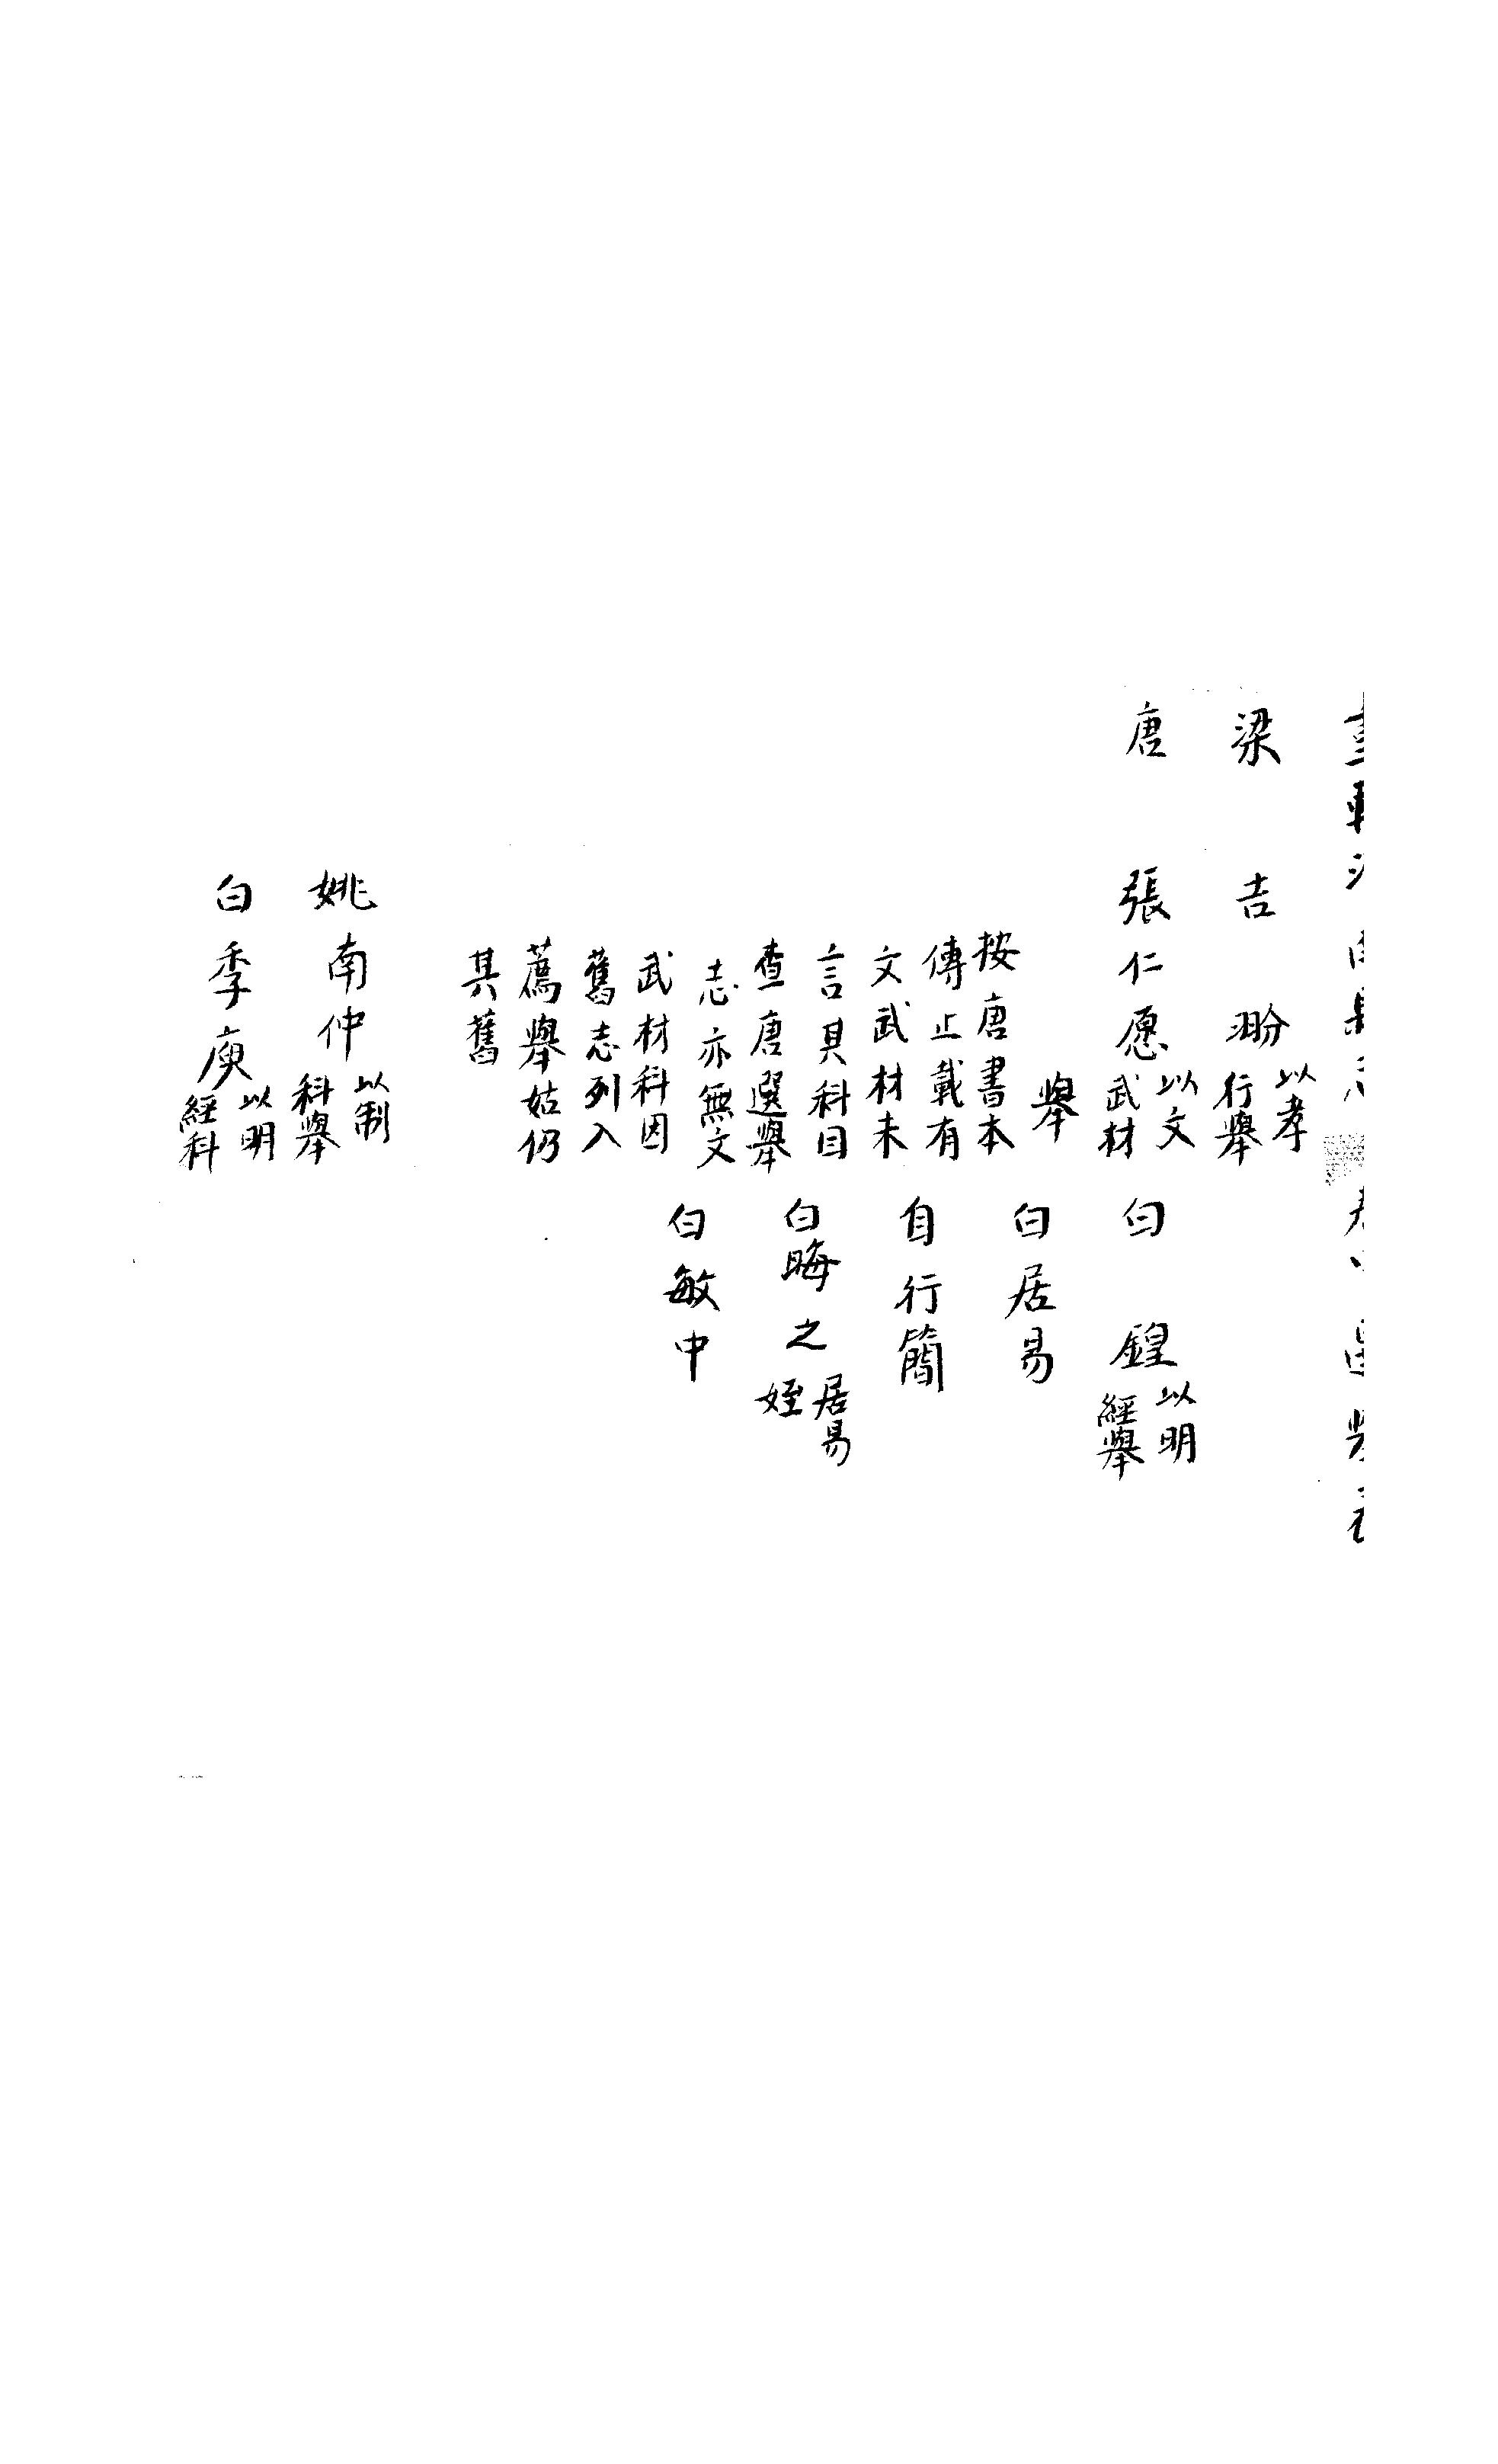 梁 吉翂以孝行舉
唐 張仁愿以文武材
舉
按唐書本
傳止載有
文武材未
言其科目
查唐選舉
志亦無文
武材科因
舊志列入
薦舉姑仍
其舊
姚南仲以制科舉
白季庾以明經科
白鍠以明經舉
白居易
自行簡
白晦之居易姪
白敏中